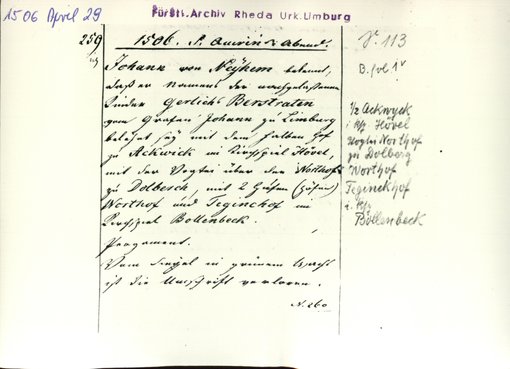 1506 April 29
Fürstl. Archiv Rheda Urk. Limburg
259
1506. S. Quirin's Abend.
Johann von Neÿhem bekennt,
daß er Namens der nachgelassenen
Kinder Gerlichs Berstraten
vom Grafen Johann zu Limburg
belehnt seÿ mit dem halben Hof
zu Ackwick im Kirchspiel Hövel,
mit der Vogtei über den Northof
zu Dolbesch, mit 2 Höfen
Worthof und Teginckhof im
Kirchspiel Bollenbeck.
Pergament.
Vom Siegel in grünem Wachs
ist die Umschrift verloren.
N. 260
N. 113
B. fol 1v
1/2 Ackwyck
i Ksp Hövel
Vogtei Northof
zu Dolberg
Worthof
Teginckhof
i. Ksp
Bollenbeck